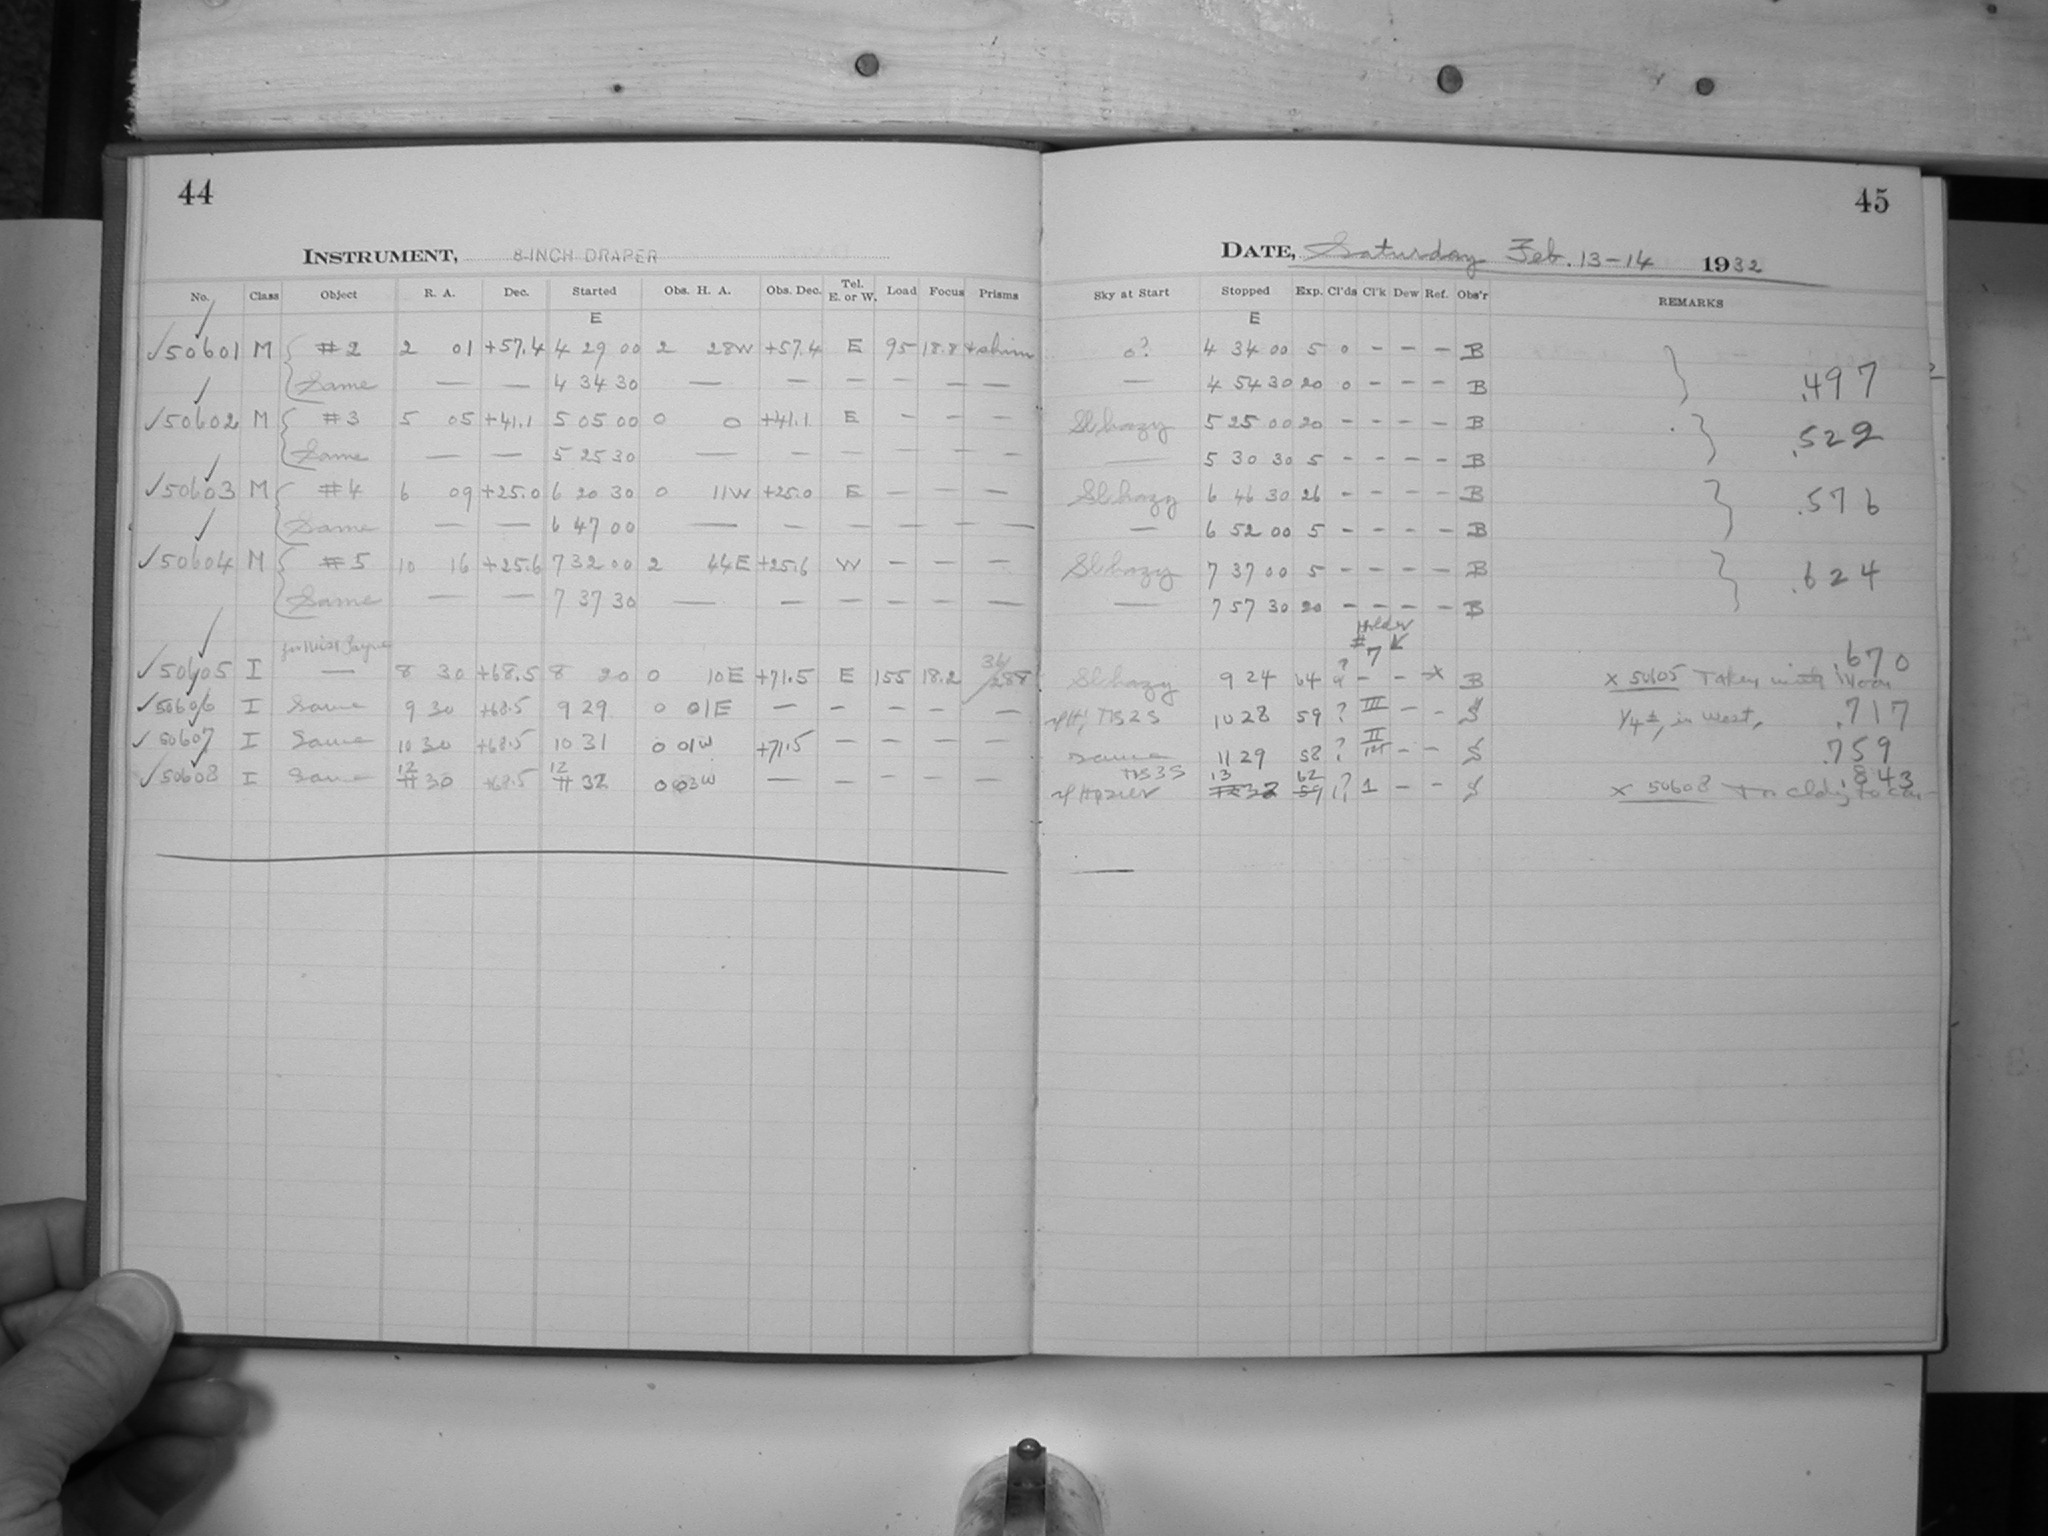 44
INSTRUMENT, 8-INCH DRAPER
No. Class Object R. A. Dec. Started Obs. H. A. Obs. Dec. Tel. E. or W. Load Focus Prisms
E
✓50601 M #2 2 01 +57.4 4 29 00 2 28W +57.4 E 95 18.8 + shim
Same — — 4 34 30 — — — — — —
✓50602 M #3 5 05 +41.1 5 05 00 0 0 +41.1 E — — —
Same — — 5 25 30 — — — — — —
✓50603 M #4 6 09 +25.0 6 20 30 0 11W +25.0 E — — —
Same — — 6 47 00 — — — — — —
✓50604 M #5 10 16 +25.6 7 32 00 2 44E +25.6 W — — —
Same — — 7 37 30 — — — — — —
for Miss Payne
✓50605 I — 8 30 +68.5 8 20 0 10E +71.5 E 155 18.2 36/288
✓50606 I Same 9 30 +68.5 9 29 0 01E — — — — —
✓50607 I Same 10 30 +68.5 10 31 0 01W +71.5 — — — —
✓50608 I Same 12 30 +68.5 12 32 0 03W — — — — —
45
DATE, Saturday Feb. 13-14 1932
Sky at Start Stopped Exp. Cl'ds Cl'k Dew Ref. Obs'r REMARKS
E
0? 4 34 00 5 0 - - - B
— 4 54 30 20 0 - - - B .497
Sl. hazy 5 25 00 20 - - - - B
— 5 30 30 5 - - - - B .522
Sl. hazy 6 46 30 26 - - - - B
— 6 52 00 5 - - - - B .576
Sl. hazy 7 37 00 5 - - - - B
— 7 57 30 20 - - - - B .624
Holder
# 7
Sl. hazy 9 24 64 ? - - x B x 50605 Taken with Moon .670
10 28 59 ? III - - S 1/4 ±, in West, .717
same 11 29 58 ? II - - S .759
13 32 62 ? 1 - - S x 50608 Too cldy to .843